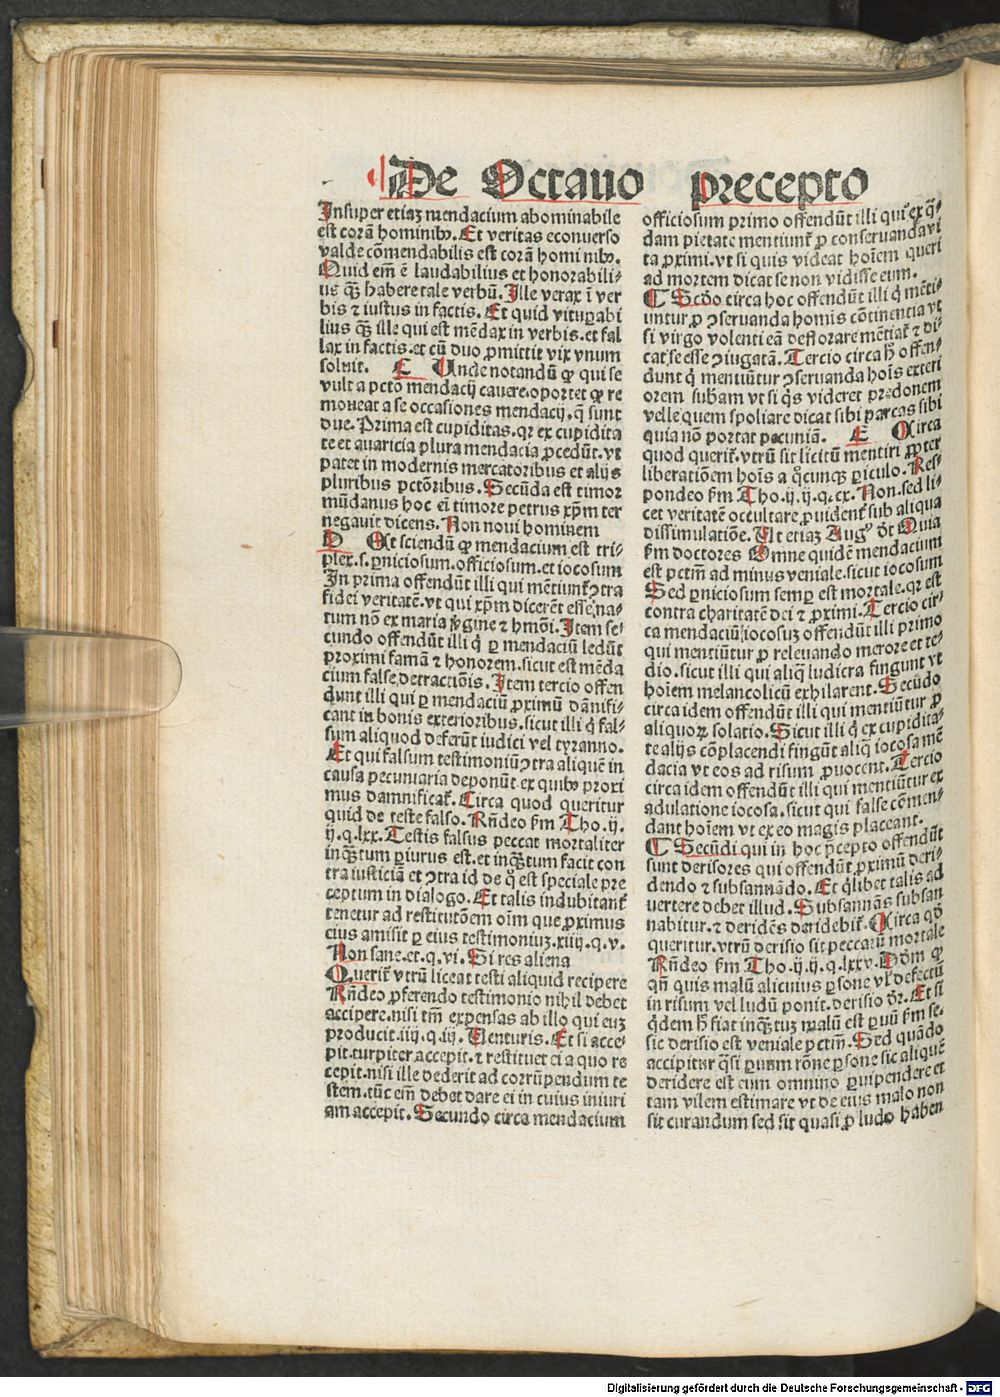 De Octauo precepto
Insuper etiaꝫ mendacium abominabile
est corā hominibꝰ. Et veritas econuerso
valde cōmendabilis est corā homi nibꝰ.
Quid em̄ ē laudabilius et honorabili⸗
us qꝫ̄ habere tale verbū. Ille verax ī ver
bis ⁊ iustus in factis. Et quid vitupabi
lius qꝫ̄ ille qui est mēdax in verbis. et fal
lax in factis. et cū duo ꝓmittit vix vnum
soluit. C Unde notandū ꝙ qui se
vult a pctō mendacij cauere. oportet ꝙ re
moueat a se occasiones mendacij. q̄ sunt
due. Prima est cupiditas. qꝛ ex cupidita
te et auaricia plura mendacia ꝓcedūt. vt
patet in modernis mercatoribus et alijs
pluribus pctōribus. Secūda est timor
mūdanus hoc ei timore petrus xp̄m ter
negauit dicens. Non noui hominem
D Et sciendū ꝙ mendacium est tri⸗
plex. s. ꝑniciosum. officiosum. et iocosum
In prima offendūt illi qui mētiunt̄ ꝯtra
fidei veritatē. vt qui xp̄m dicerēt esse na⸗
tum nō ex maria v̄gine ⁊ hmōi. Item se⸗
cundo offendūt illi q̄ ꝑ mendaciū ledūt
proximi famā ⁊ honorem. sicut est mēda
cium false detractiōis. Item tercio offen
dunt illi qui ꝑ mendaciū ꝓximū dānifi⸗
cant in bonis exterioribus. sicut illi q̄ fal⸗
sum aliquod deferūt iudici vel tyranno.
Et qui falsum testimoniū ꝯtra aliquē in
causa pecuniaria deponūt. ex quibꝰ proxi
mus damnificat̄. Circa quod queritur
quid de teste falso. Rn̄deo ẜm Tho. ij.
ij. q. lxx. Testis falsus peccat mortaliter
inqꝫ̄tum ꝑiurus est. et inqꝫ̄tum facit con
tra iusticiā et ꝯtra id de q̊ est speciale pre
ceptum in dialogo. Et talis indubitant̄
tenetur ad restitutōem oīm que ꝓximus
eius amisit ꝑ eius testimoniuꝫ. xiiij. q. v.
Non sane. et. q. vi. Si res aliena
Querit̄ vtrū liceat testi aliquid recipere
Rn̄deo ꝓferendo testimonio nihil debet
accipere. nisi tm̄ expensas ab illo qui euꝫ
producit. iiij. q. iij. Uenturis. Et si acce⸗
pit. turpiter accepit. ⁊ restituet ei a quo re
cepit. nisi ille dederit ad corrūpendum te
stem. tūc em̄ debet dare ei in cuius iniuri
am accepit. Secundo circa mendacium
officiosum primo offendūt illi qui ex q̄⸗
dam pietate mentiunt̄ ꝓ conseruanda vi
ta ꝓximi. vt si quis videat hoīem queri
ad mortem dicat se non vidisse eum.
C Scd̄o circa hoc offendūt illi q̄ mēti⸗
untur ꝓ ꝯseruanda homīs cōtinentia vt
si virgo volenti eā deflorare mētiat̄ ⁊ di⸗
cat se esse ꝯiugatā. Tercio circa h̄ offen⸗
dunt q̄ mentiūtur ꝯseruanda hoīs exteri
orem subam vt si q̄s videret predonem
velle quem spoliare dicat sibi parcas sibi
quia nō portat pecuniā. E Circa
quod querit̄. vtrū sit licitū mentiri ꝓpter
liberatiōem hoīs a q̊cunqꝫ ꝑiculo. Res⸗
pondeo ẜm Tho. ij. ij. q. cx. Non. sed li⸗
cet veritatē occultare ꝓuident̄ sub aliqua
dissimulatiōe. Ut etiaꝫ Augꝰ dt̄ Quia
ẜm doctores Omne quidē mendacium
est pctm̄ ad minus veniale. sicut iocosum
Sed ꝑniciosum semꝑ est mortale. qꝛ est
contra charitatē dei ⁊ ꝓximi. Tercio cir⸗
ca mendaciū iocosuꝫ offendūt illi primo
qui mentiūtur ꝓ releuando merore et te⸗
dio. sicut illi qui aliq̄ ludicra fingunt vt
hoīem melancolicū exhilarent. Secūdo
circa idem offendūt illi qui mentiūtur ꝓ
aliquoꝝ solatio. Sicut illi q̄ ex cupidita⸗
te alijs cōplacendi fingūt aliq̄ iocosa mē
dacia vt eos ad risum ꝓuocent. Tercio
circa idem offendūt illi qui mentiūtur ex
adulatione iocosa. sicut qui false cōmen⸗
dant hoīem vt ex eo magis placeant.
C Secūdi qui in hoc p̄cepto offendūt
sunt derisores qui offendūt ꝓximū deri⸗
dendo ⁊ subsannādo. Et q̄libet talis ad
uertere debet illud. Subsannās subsan
nabitur. ⁊ deridēs deridebit̄. Circa qd̄
queritur. vtrū derisio sit peccatū mortale
Rn̄deo ẜm Tho. ij. ij. q. lxxv. Dōm ꝙ
qn̄ quis malū alicuius ꝑsone vl̄ defectū
in risum vel ludū ponit. derisio dr̄. Et si
q̄dem h̄ fiat inqꝫ̄tuꝫ malū est ꝑuū ẜm se⸗
sic derisio est veniale pctm̄. Sed quādo
accipitur q̄si ꝑuum rōne ꝑsone sic aliquē
deridere est eum omnino ꝑuipendere et
tam vilem estimare vt de eius malo non
sit curandum sed sit quasi ꝓ ludo haben
Digitalisierung gefördert durch die Deutsche Forschungsgemeinschaft - DFG